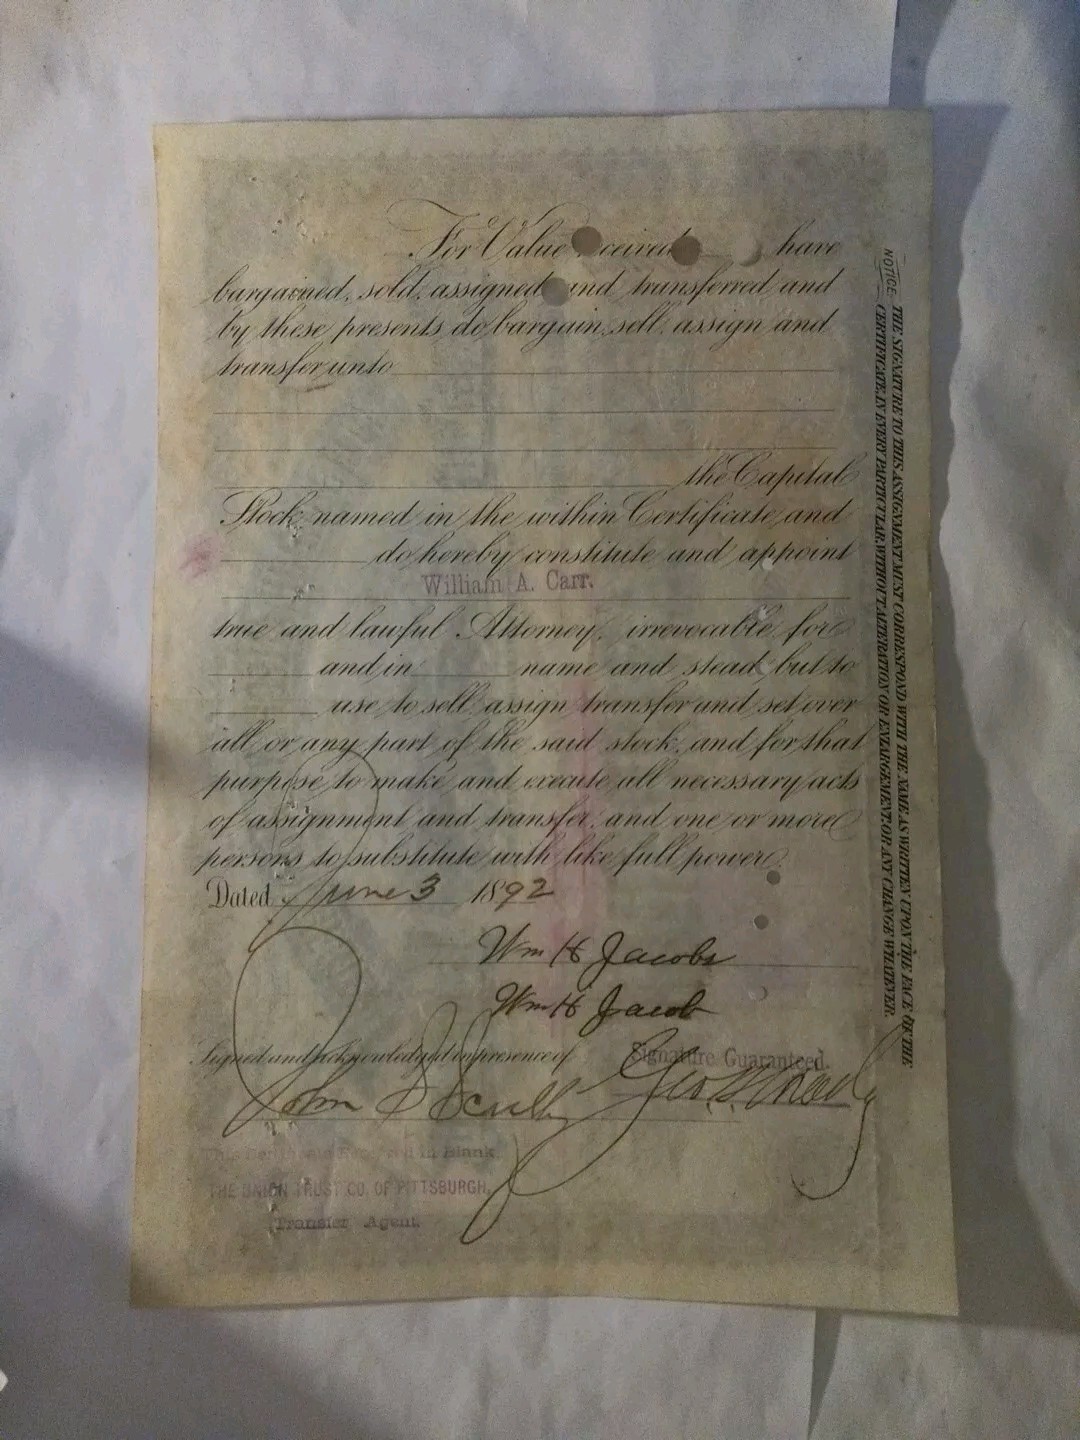 For Value ceived have
bargained, sold, assigned and transferred and
by these presents do bargain, sell, assign and
transfer unto
the Capital
Stock named in the within Certificate, and
do hereby constitute and appoint
William A. Carr.
true and lawful Attorney, irrevocable for
and in name and stead, but to
use to sell, assign, transfer and set over
all or any part of the said stock, and for that
purpose to make and execute all necessary acts
of assignment and transfer, and one or more
persons to substitute with like full power.
Dated June 3 1892
Wm H Jacobs
Wm H Jacob
Signed and acknowledged in presence of
Signature Guaranteed.
John Scully Geo.
This Certificate Received in Blank.
THE UNION TRUST CO. OF PITTSBURGH,
Transfer Agent.
NOTICE. THE SIGNATURE TO THIS ASSIGNMENT MUST CORRESPOND WITH THE NAME AS WRITTEN UPON THE FACE OF THE
CERTIFICATE, IN EVERY PARTICULAR WITHOUT ALTERATION OR ENLARGEMENT, OR ANY CHANGE WHATEVER.